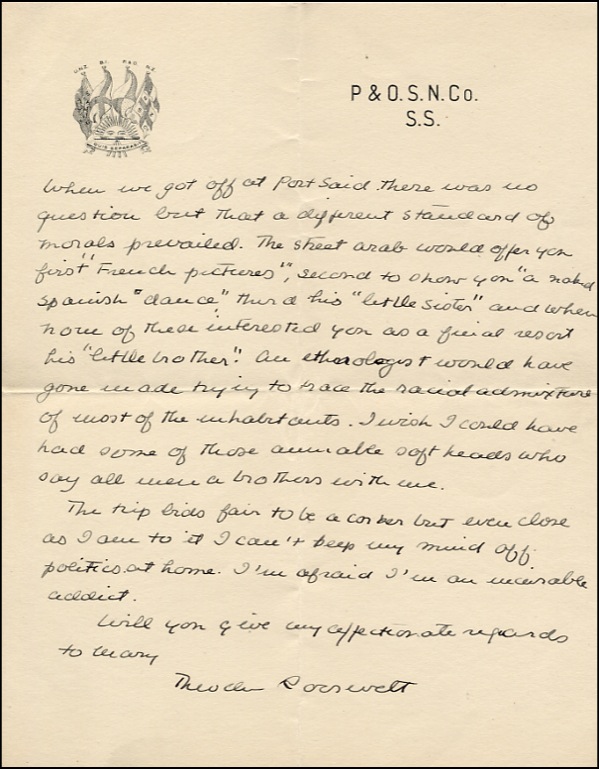 P & O. S. N. Co.
S.S.
QUIS SEPARABIT
When we got off at Port Said there was no
question but that a different standard of
morals prevailed. The street arab would offer you
first "French pictures", second to show you "a naked
Spanish "dance" third his "little sister" and when
none of these interested you as a final resort
his "little brother". An ethnologist would have
gone made trying to trace the racial admixture
of most of the inhabitants. I wish I could have
had some of those amiable soft heads who
say all men a brothers with me.
The trip bids fair to be a corker but even close
as I am to it I can't keep my mind off
politics at home. I'm afraid I'm an incurable
addict.
Will you give my affectionate regards
to Mary
Theodore Roosevelt